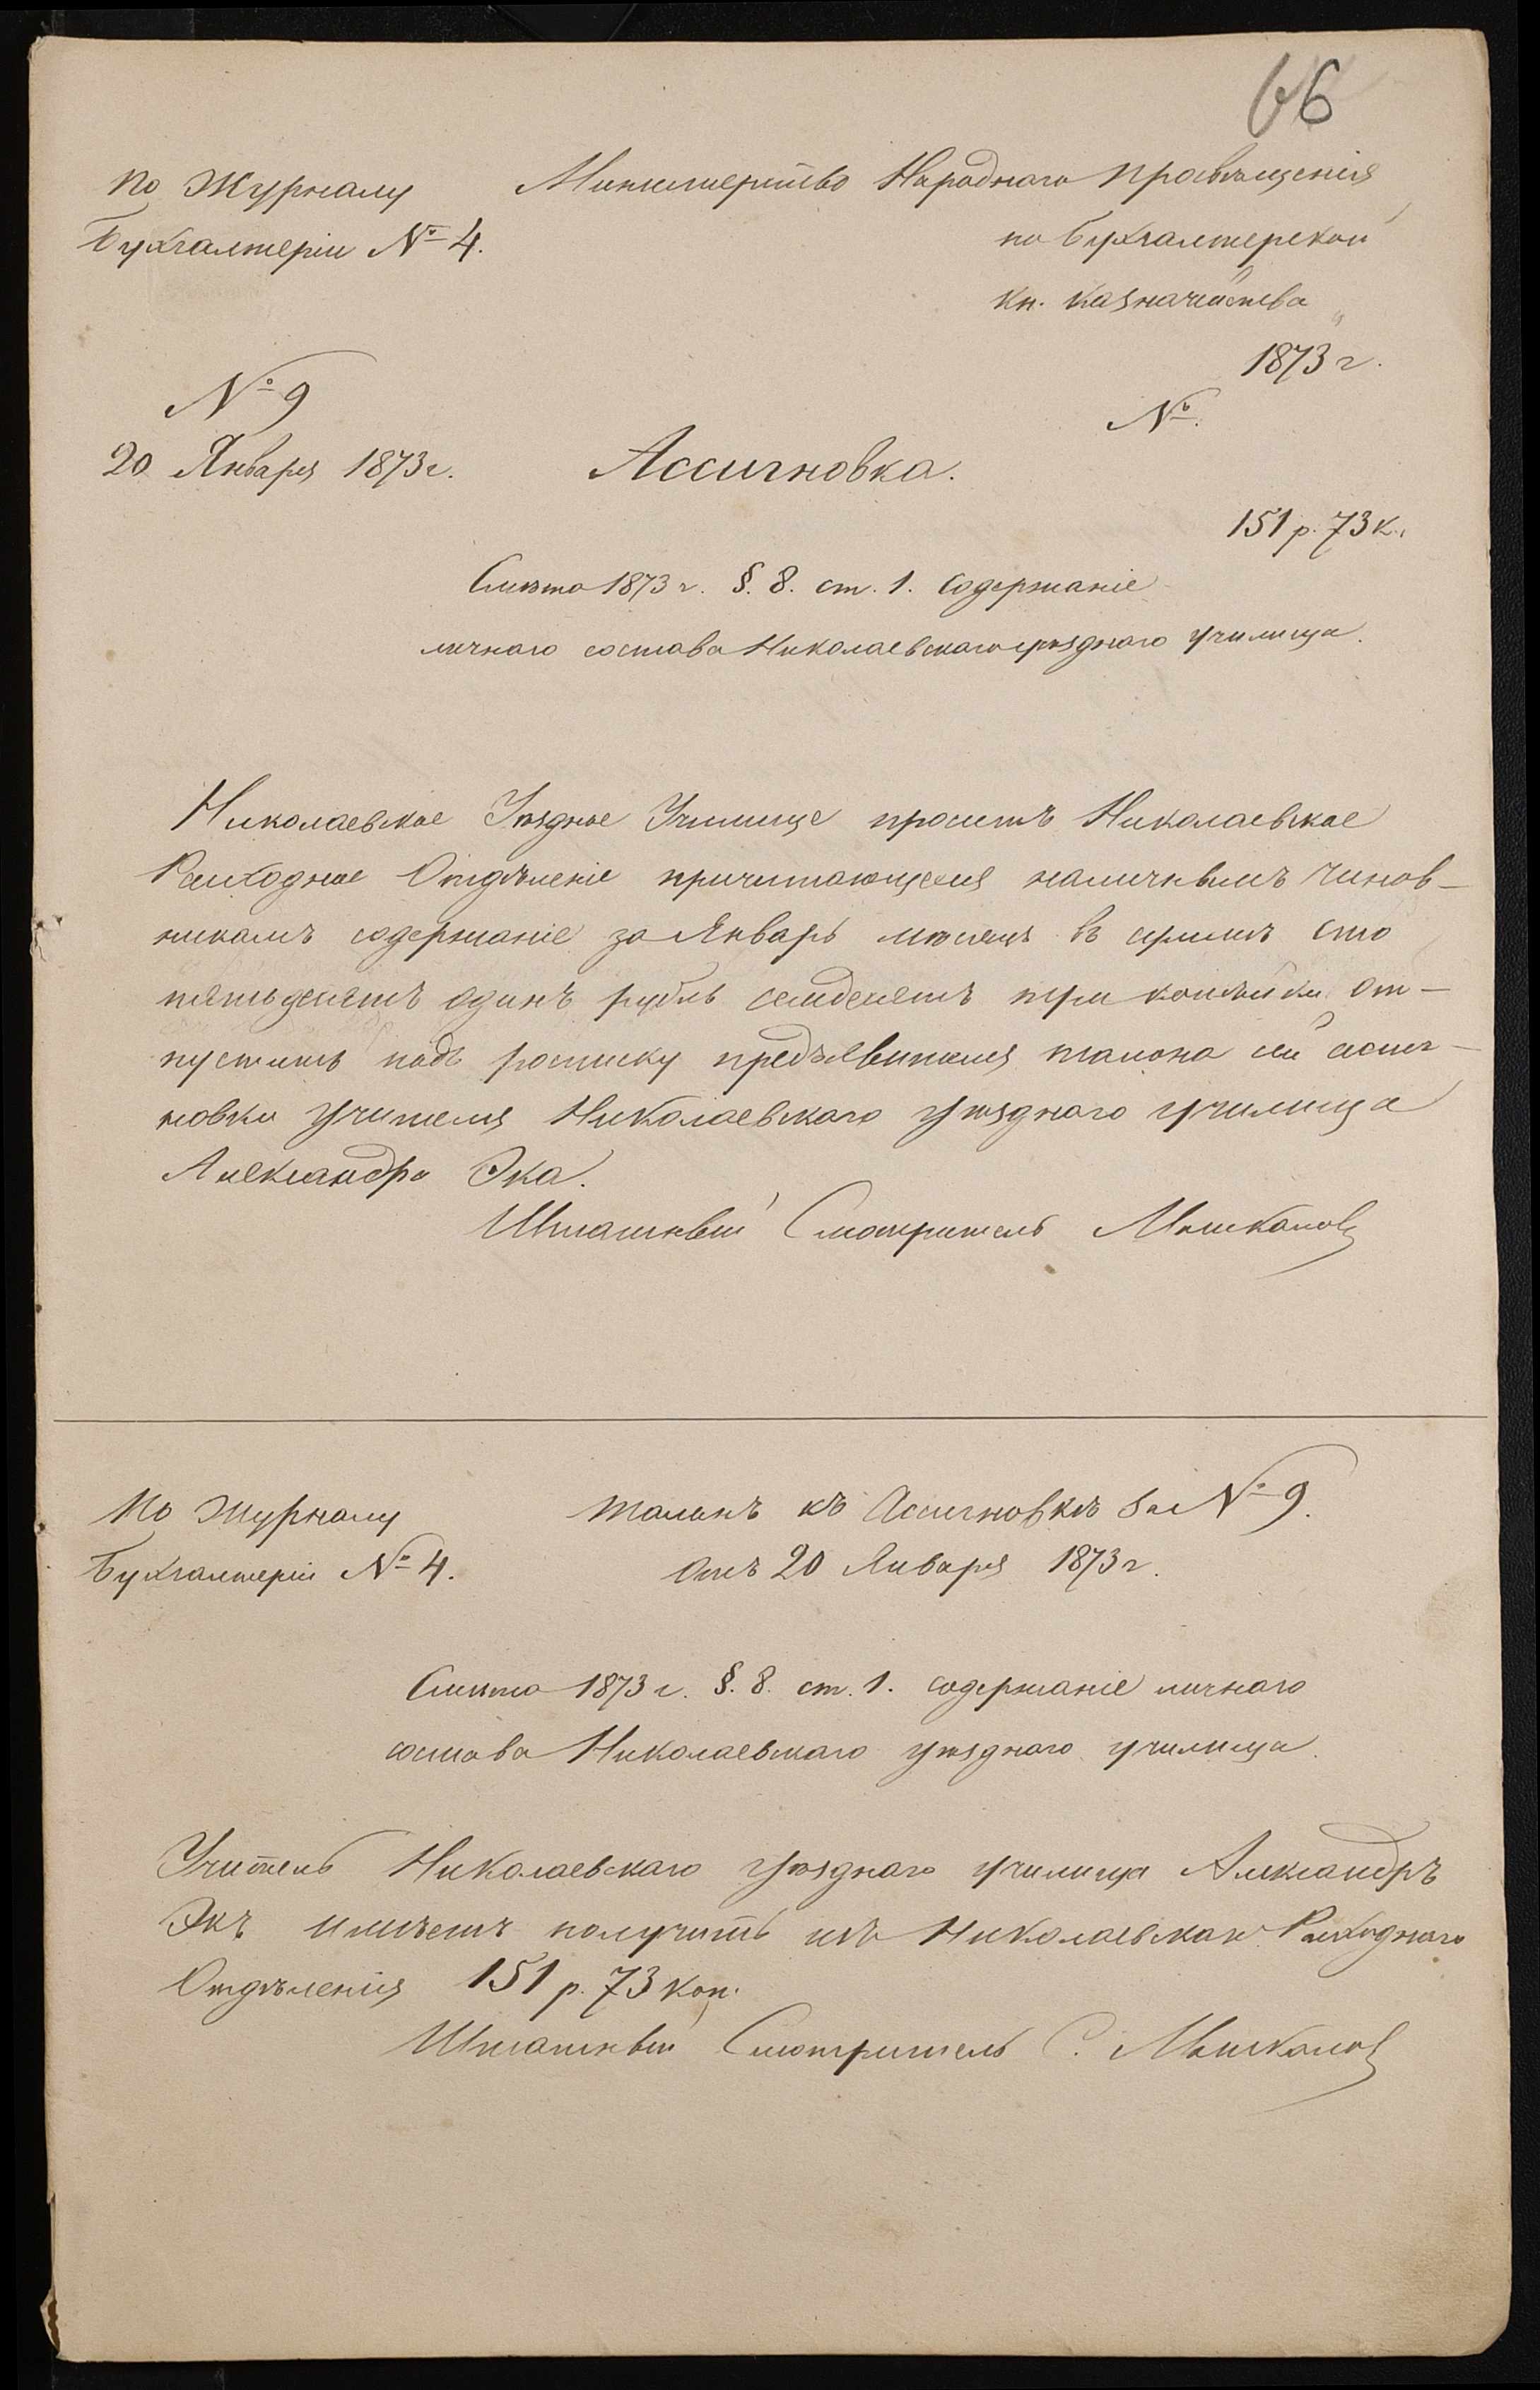 66
по Журналу
Бухгалтеріи № 4.
Министерство Народнаго Просвѣщенія
по бухгалтерской
кн. казначейства
1873 г.
№.
№ 9
20 Января 1873 г.
Ассигновка.
151 р. 73 к.
Смѣта 1873 г. §. 8. ст. 1. содержаніе
личнаго состава Николаевскаго уѣзднаго училища.
Николаевское Уѣздное Училище проситъ Николаевское
Расходное Отдѣленіе причитающееся наличнымъ чинов-
никамъ содержаніе за Январь мѣсяцъ въ суммѣ сто
пятьдесятъ одинъ рубль семдесятъ три копѣйки от-
пустить подъ росписку предъявителя талона сей ассиг-
новки учителя Николаевскаго уѣзднаго училища
Александра Эка.
Штатный Смотритель
По Журналу
Бухгалтеріи № 4.
Талонъ къ Ассигновкѣ за № 9.
отъ 20 Января 1873 г.
Смѣта 1873 г. §. 8. ст. 1. содержаніе личнаго
состава Николаевскаго уѣзднаго училища.
Учитель Николаевскаго уѣзднаго училища Александръ
Экъ имѣетъ получить изъ Николаевскаго Расходнаго
Отдѣленія 151 р. 73 коп.
Штатный Смотритель С.